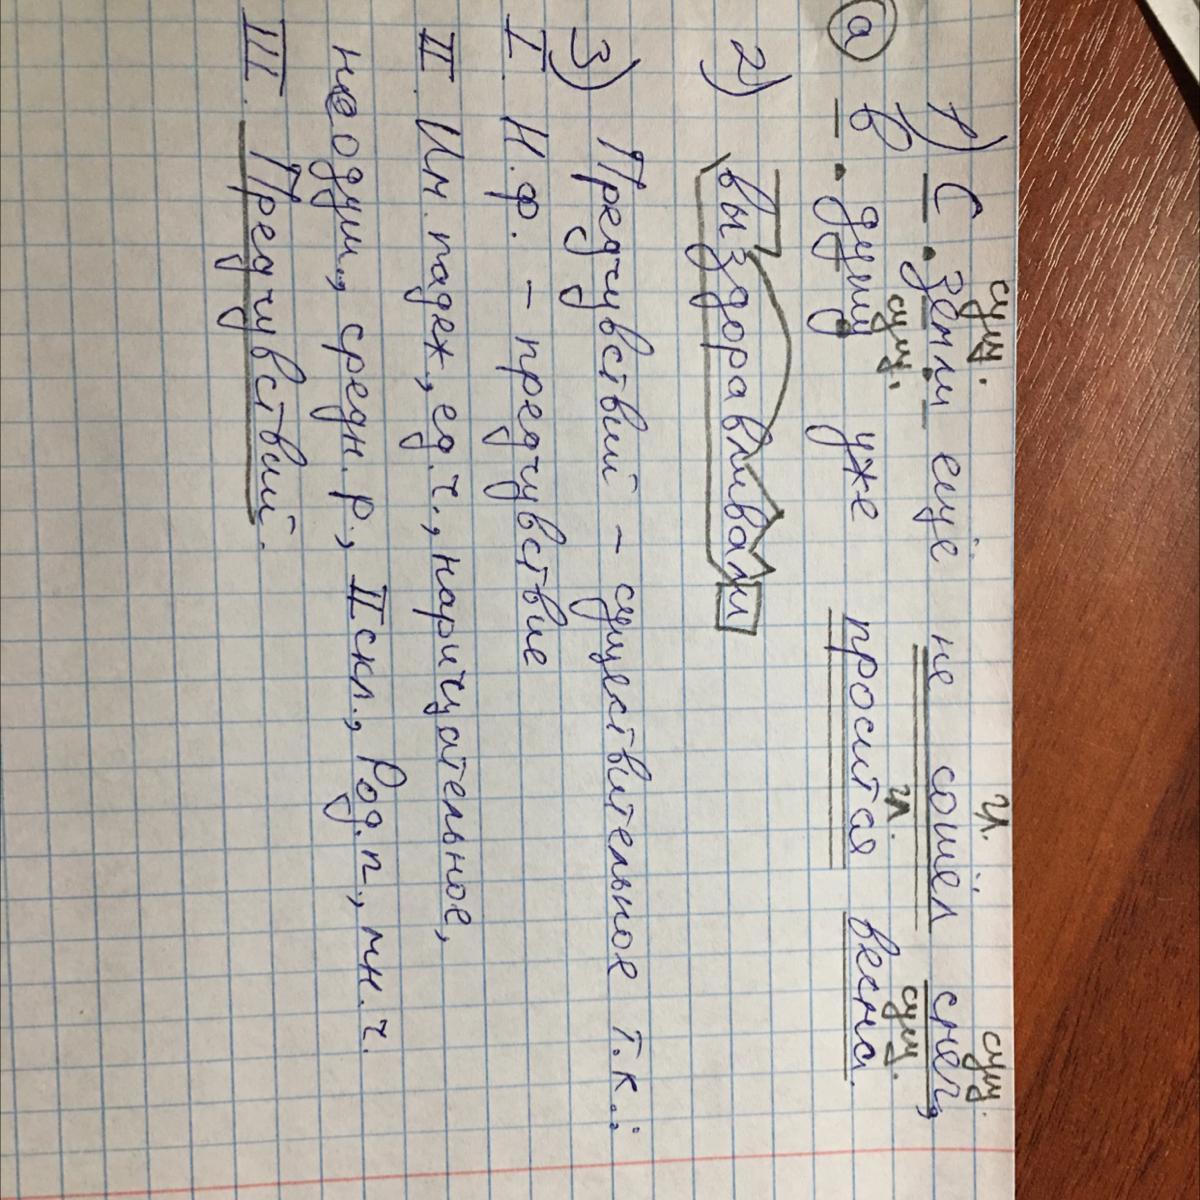 сущ. гл. сущ.
1) С земли ещё не сошёл снег,
сущ. гл. сущ.
а в душу уже просится весна.
2) выздоравливали
3) Предчувствий – существительное т.к.:
I. Н.ф. – предчувствие
II. Им. падеж, ед.ч., нарицательное,
неодуш., средн. р., II скл., Род. п., мн.ч.
III. Предчувствий.